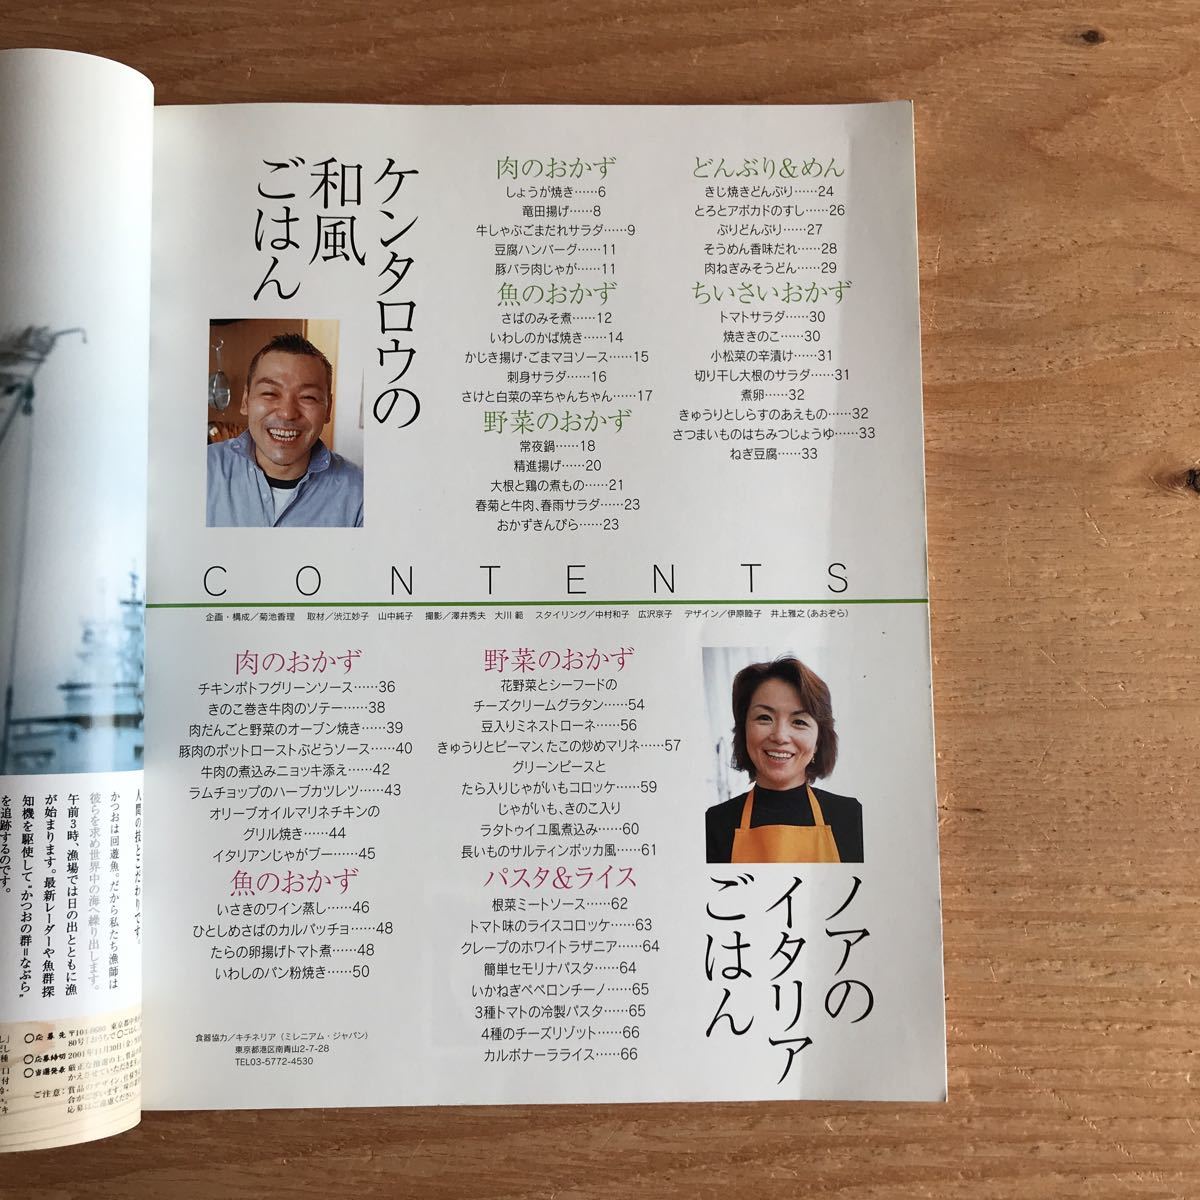 ケンタロウの
和風
ごはん
肉のおかず
しょうが焼き……6
竜田揚げ……8
牛しゃぶごまだれサラダ……9
豆腐ハンバーグ……11
豚バラ肉じゃが……11
魚のおかず
さばのみそ煮……12
いわしのかば焼き……14
かじき揚げ・ごまマヨソース……15
刺身サラダ……16
さけと白菜の辛ちゃんちゃん……17
野菜のおかず
常夜鍋……18
精進揚げ……20
大根と鶏の煮もの……21
春菊と牛肉、春雨サラダ……23
おかずきんぴら……23
どんぶり&めん
きじ焼きどんぶり……24
とろとアボカドのすし……26
ぶりどんぶり……27
そうめん香味だれ……28
肉ねぎみそうどん……29
ちいさいおかず
トマトサラダ……30
焼ききのこ……30
小松菜の辛漬け……31
切り干し大根のサラダ……31
煮卵……32
きゅうりとしらすのあえもの……32
さつまいものはちみつじょうゆ……33
ねぎ豆腐……33
CONTENTS
企画・構成／菊池香理 取材／渋江妙子 山中純子 撮影／澤井秀夫 大川 範 スタイリング／中村和子 広沢京子 デザイン／伊原睦子 井上雅之(あおぞら)
肉のおかず
チキンポトフグリーンソース……36
きのこ巻き牛肉のソテー……38
肉だんごと野菜のオーブン焼き……39
豚肉のポットローストぶどうソース……40
牛肉の煮込みニョッキ添え……42
ラムチョップのハーブカツレツ……43
オリーブオイルマリネチキンの
グリル焼き……44
イタリアンじゃがブー……45
魚のおかず
いさきのワイン蒸し……46
ひとしめさばのカルパッチョ……48
たらの卵揚げトマト煮……48
いわしのパン粉焼き……50
野菜のおかず
花野菜とシーフードの
チーズクリームグラタン……54
豆入りミネストローネ……56
きゅうりとピーマン、たこの炒めマリネ……57
グリーンピースと
たら入りじゃがいもコロッケ……59
じゃがいも、きのこ入り
ラタトゥイユ風煮込み……60
長いものサルティンボッカ風……61
パスタ&ライス
根菜ミートソース……62
トマト味のライスコロッケ……63
クレープのホワイトラザニア……64
簡単セモリナパスタ……64
いかねぎペペロンチーノ……65
3種トマトの冷製パスタ……65
4種のチーズリゾット……66
カルボナーラライス……66
ノアの
イタリア
ごはん
食器協力／キチネリア（ミレニアム・ジャパン）
東京都港区南青山2-7-28
TEL03-5772-4530
人間の技とこだわりです。
かつおは回遊魚。だから私たち漁師は
彼らを求め世界中の海へ繰り出します。
午前3時、漁場では日の出とともに漁
が始まります。最新レーダーや魚群探
知機を駆使して“かつおの群=なぶら”
を追跡するのです。
○応募先
○応募締切 2001年11月30日
○当選発表
ご注意：